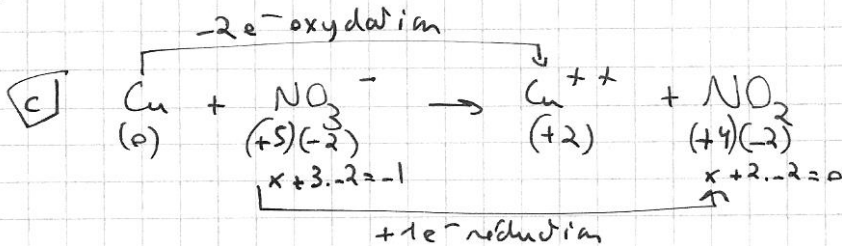 -2e⁻ oxydation
c Cu + NO₃⁻ → Cu⁺⁺ + NO₂
(0) (+5)(-2) (+2) (+4)(-2)
x+3.-2=-1 x+2.-2=0
+1e⁻ réduction